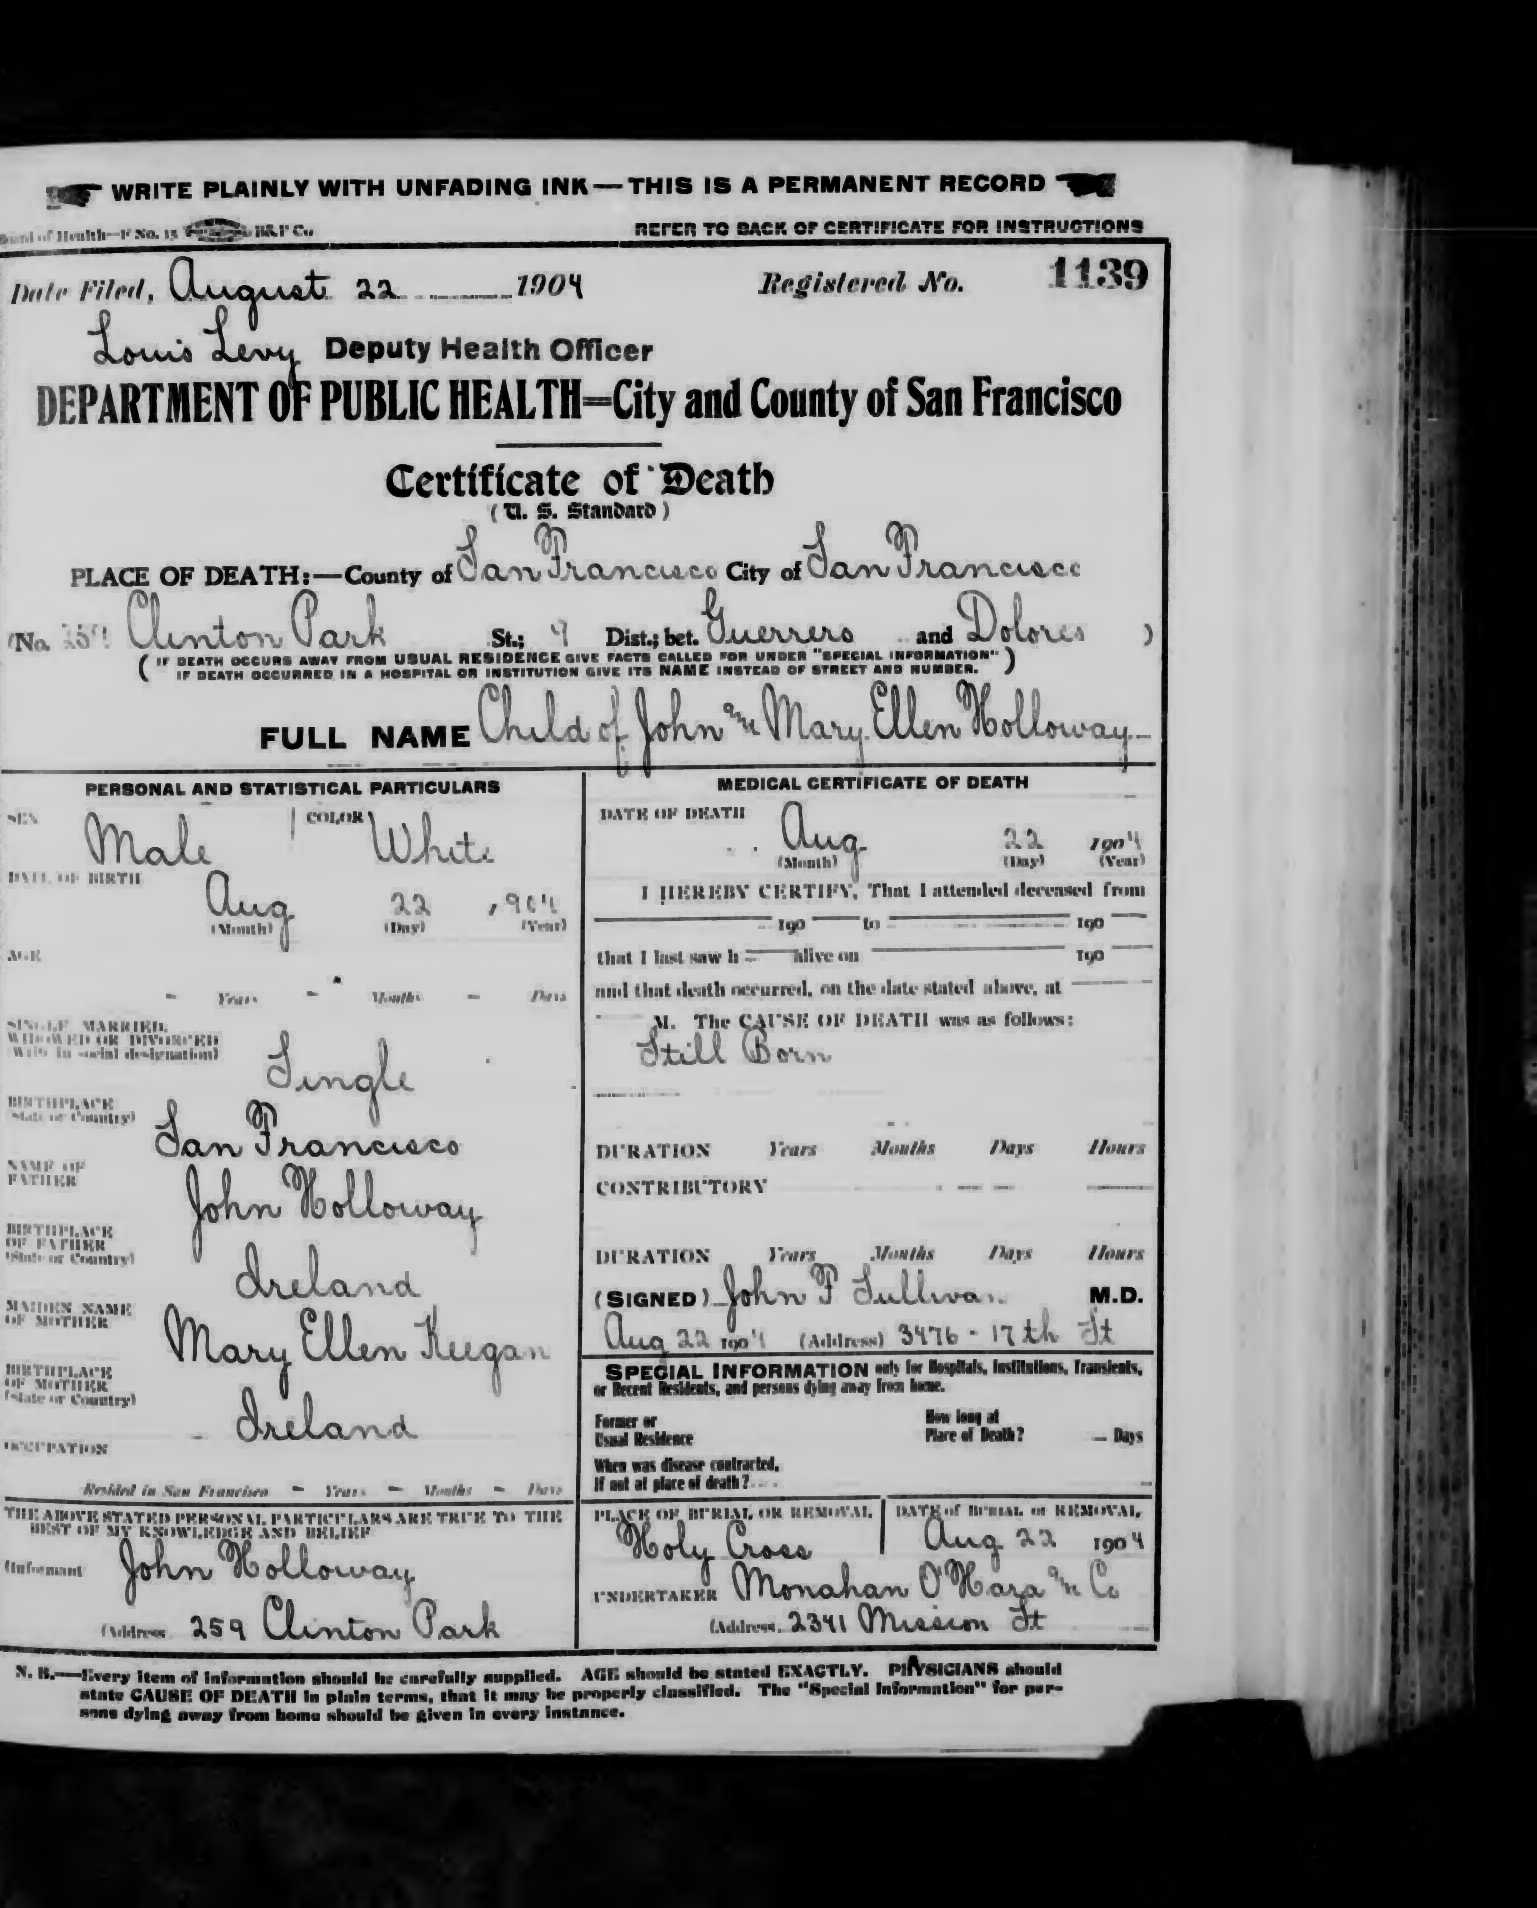 WRITE PLAINLY WITH UNFADING INK—THIS IS A PERMANENT RECORD
Board of Health—F No. 15 B&P Co.
REFER TO BACK OF CERTIFICATE FOR INSTRUCTIONS
Date Filed, August 22 1904 Registered No. 1139
Louis Levy Deputy Health Officer
DEPARTMENT OF PUBLIC HEALTH=City and County of San Francisco
Certificate of Death
(U. S. Standard)
PLACE OF DEATH:—County of San Francisco City of San Francisco
(No. 259 Clinton Park St.; 9 Dist.; bet. Guerrero and Dolores )
( IF DEATH OCCURS AWAY FROM USUAL RESIDENCE GIVE FACTS CALLED FOR UNDER "SPECIAL INFORMATION" )
IF DEATH OCCURRED IN A HOSPITAL OR INSTITUTION GIVE ITS NAME INSTEAD OF STREET AND NUMBER.
FULL NAME Child of John and Mary Ellen Holloway
PERSONAL AND STATISTICAL PARTICULARS
SEX Male COLOR White
DATE OF BIRTH
Aug 22 1904
(Month) (Day) (Year)
AGE
– Years – Months – Days
SINGLE, MARRIED,
WIDOWED OR DIVORCED
(Write in social designation)
Single
BIRTHPLACE
(State or Country)
San Francisco
NAME OF
FATHER
John Holloway
BIRTHPLACE
OF FATHER
(State or Country)
Ireland
MAIDEN NAME
OF MOTHER
Mary Ellen Keegan
BIRTHPLACE
OF MOTHER
(State or Country)
Ireland
OCCUPATION
Resided in San Francisco – Years – Months – Days
THE ABOVE STATED PERSONAL PARTICULARS ARE TRUE TO THE
BEST OF MY KNOWLEDGE AND BELIEF
(Informant John Holloway
(Address 259 Clinton Park
MEDICAL CERTIFICATE OF DEATH
DATE OF DEATH
Aug 22 1904
(Month) (Day) (Year)
I HEREBY CERTIFY, That I attended deceased from
190 to 190
that I last saw h alive on 190
and that death occurred, on the date stated above, at
M. The CAUSE OF DEATH was as follows:
Still Born
DURATION Years Months Days Hours
CONTRIBUTORY
DURATION Years Months Days Hours
(SIGNED) John P Sullivan M.D.
Aug 22 1904 (Address) 3476 - 17th St
SPECIAL INFORMATION only for Hospitals, Institutions, Transients,
or Recent Residents, and persons dying away from home.
Former or
Usual Residence
How long at
Place of Death? – Days
When was disease contracted,
If not at place of death?
PLACE OF BURIAL OR REMOVAL
Holy Cross
DATE of BURIAL or REMOVAL
Aug 22 1904
UNDERTAKER Monahan O'Hara and Co
(Address, 2341 Mission St
N. B.—Every item of information should be carefully supplied. AGE should be stated EXACTLY. PHYSICIANS should
state CAUSE OF DEATH in plain terms, that it may be properly classified. The "Special Information" for per-
sons dying away from home should be given in every instance.